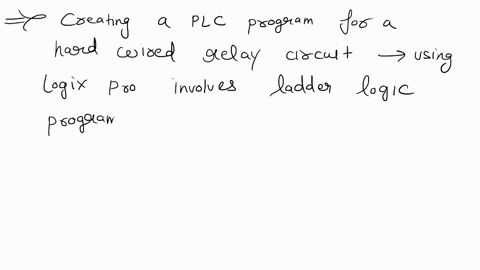 ⇒ Creating a PLC program for a
hard wired relay circuit → using
Logix pro involves ladder logic
program